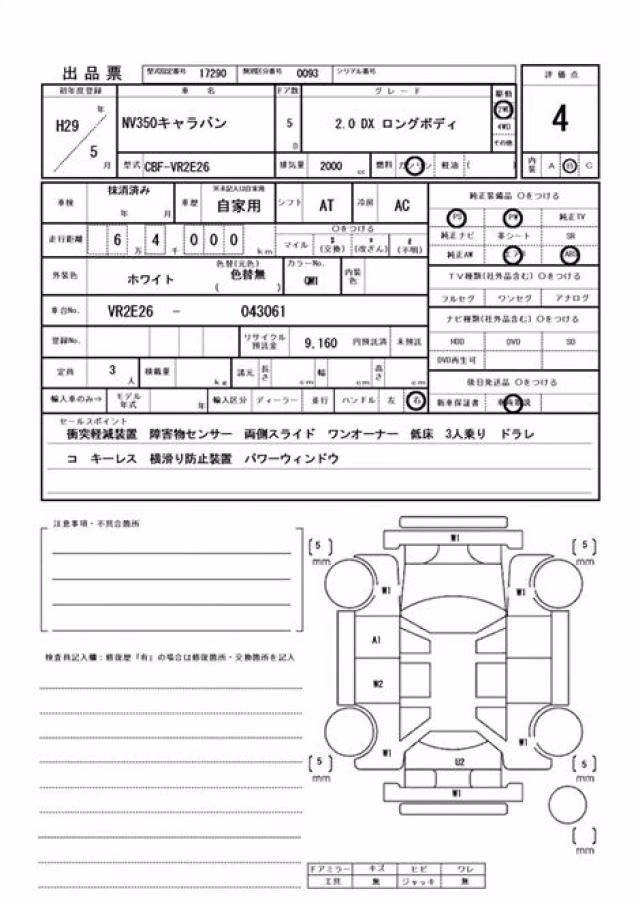 出品票 型式指定番号 17290 類別区分番号 0093 シリアル番号
初年度登録 車 名 ドア数 グレード 駆動 評価点
H29 年 5 月 NV350キャラバン 5 D 2.0 DX ロングボディ 2WD 4WD その他 4
型式 CBF-VR2E26 排気量 2000 cc 燃料 ガソリン 軽油 ( ) 内装 A B C
車検 抹消済み 年 月 車歴 ※未記入は自家用 自家用 シフト AT 冷房 AC 純正装備品 〇をつける
PS PW 純正TV
走行距離 6 万 4 千 0 0 0 km 〇をつける マイル $ (交換) * (改ざん) # (不明) 純正ナビ 革シート SR
純正AW エアB ABS
外装色 ホワイト 色替(元色) 色替無 ( ) カラーNo. QM1 内装色
TV種類(社外品含む) 〇をつける
フルセグ ワンセグ アナログ
車台No. VR2E26 - 043061
ナビ種類(社外品含む) 〇をつける
登録No. リサイクル預託金 9,160 円預託済 未預託 HDD DVD SD
DVD再生可
定員 3 人 積載量 kg 諸元 長さ cm 幅 cm 高さ cm 後日発送品 〇をつける
輸入車のみ⇒ モデル年式 年 輸入区分 ディーラー 並行 ハンドル 左 右 新車保証書 車両取説
セールスポイント
衝突軽減装置 障害物センサー 両側スライド ワンオーナー 低床 3人乗り ドラレ
コ キーレス 横滑り防止装置 パワーウィンドウ
注意事項・不具合箇所
検査員記入欄:修復歴「有」の場合は修復箇所・交換箇所を記入
W1
[5] mm [5] mm
W1 W1
A1
W2
W1 W1
[5] mm [5] mm
U2
W1
[ ] mm
ドアミラー キズ ヒビ ワレ
工具 無 ジャッキ 無